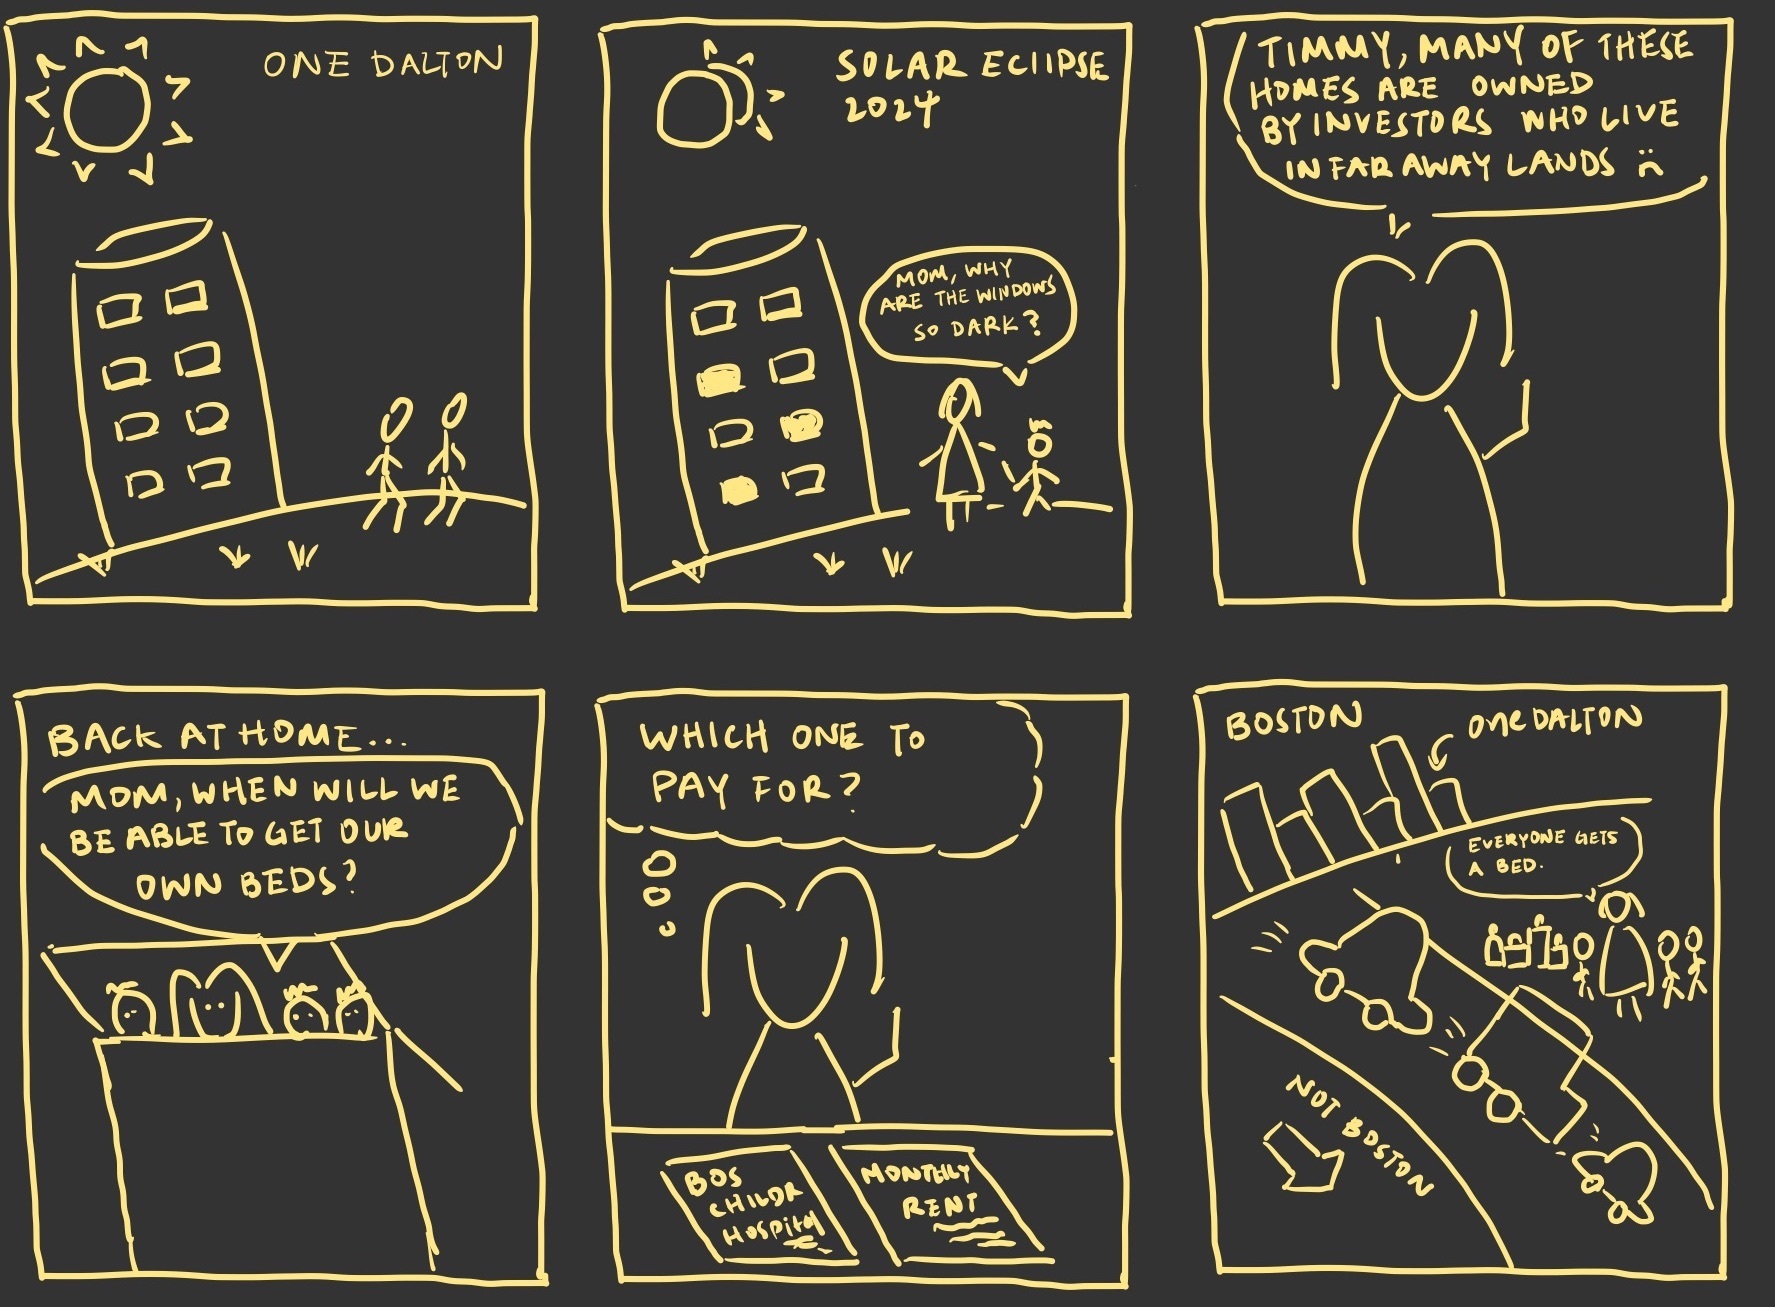 ONE DALTON
SOLAR ECIIPSE
2024
MOM, WHY
ARE THE WINDOWS
SO DARK?
TIMMY, MANY OF THESE
HOMES ARE OWNED
BY INVESTORS WHO LIVE
IN FAR AWAY LANDS :(
BACK AT HOME...
MOM, WHEN WILL WE
BE ABLE TO GET OUR
OWN BEDS?
WHICH ONE TO
PAY FOR?
BOS
CHILDR
HOSPITAL
MONTHLY
RENT
BOSTON
ONE DALTON
EVERYONE GETS
A BED.
NOT BOSTON